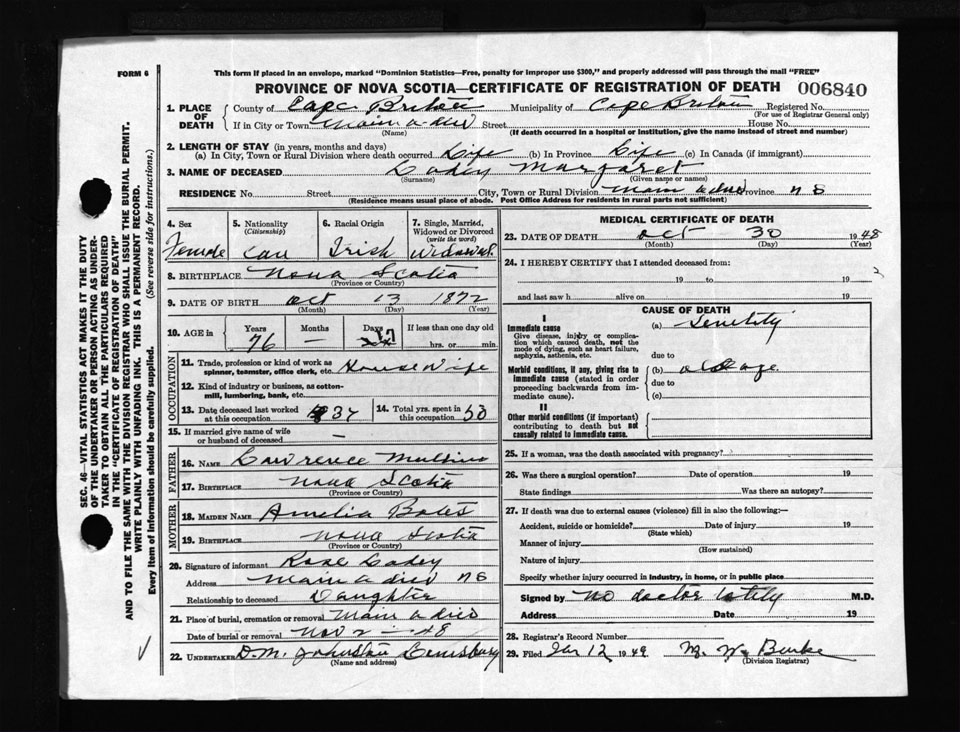 FORM 6
This form if placed in an envelope, marked "Dominion Statistics—Free, penalty for improper use $300," and properly addressed will pass through the mail "FREE"
PROVINCE OF NOVA SCOTIA—CERTIFICATE OF REGISTRATION OF DEATH 006840
1. PLACE OF DEATH
County of Cape Breton Municipality of Cape Breton Registered No.
(For use of Registrar General only)
If in City or Town Main a-dieu Street House No.
(Name) (If death occurred in a hospital or institution, give the name instead of street and number)
2. LENGTH OF STAY (in years, months and days)
(a) In City, Town or Rural Division where death occurred Life (b) In Province Life (c) In Canada (if immigrant)
3. NAME OF DECEASED Margaret
(Surname) (Given name or names)
RESIDENCE No. Street City, Town or Rural Division Main a dieu Province NS
(Residence means usual place of abode. Post Office Address for residents in rural parts not sufficient)
4. Sex
Female
5. Nationality
(Citizenship)
Can
6. Racial Origin
Irish
7. Single, Married, Widowed or Divorced
(write the word)
Widowed
8. BIRTHPLACE Nova Scotia
(Province or Country)
9. DATE OF BIRTH Oct 13 1872
(Month) (Day) (Year)
10. AGE in Years Months Days If less than one day old
76 — 17 hrs. or min.
OCCUPATION
11. Trade, profession or kind of work as spinner, teamster, office clerk, etc. House Wife
12. Kind of industry or business, as cotton-mill, lumbering, bank, etc.
13. Date deceased last worked at this occupation 37
14. Total yrs. spent in this occupation 50
15. If married give name of wife or husband of deceased —
FATHER
16. NAME Lawrence Mullins
17. BIRTHPLACE Nova Scotia
(Province or Country)
MOTHER
18. MAIDEN NAME Amelia Bates
19. BIRTHPLACE Nova Scotia
(Province or Country)
20. Signature of informant Rose
Address Main a dieu NS
Relationship to deceased Daughter
21. Place of burial, cremation or removal Main a dieu
Date of burial or removal Nov 2 — 48
22. UNDERTAKER D.M. Johnston Louisburg
(Name and address)
MEDICAL CERTIFICATE OF DEATH
23. DATE OF DEATH Oct 30 1948
(Month) (Day) (Year)
24. I HEREBY CERTIFY that I attended deceased from:
19 to 19
and last saw h alive on 19
2
CAUSE OF DEATH
I
Immediate cause
Give disease, injury or complication which caused death, not the mode of dying, such as heart failure, asphyxia, asthenia, etc.
(a) Senility
due to
Morbid conditions, if any, giving rise to immediate cause (stated in order proceeding backwards from immediate cause).
(b) old age
due to
(c)
II
Other morbid conditions (if important) contributing to death but not causally related to immediate cause.
25. If a woman, was the death associated with pregnancy?
26. Was there a surgical operation? Date of operation 19
State findings Was there an autopsy?
27. If death was due to external causes (violence) fill in also the following:—
Accident, suicide or homicide? Date of injury 19
(State which)
Manner of injury
(How sustained)
Nature of injury
Specify whether injury occurred in industry, in home, or in public place
Signed by No doctor lately M.D.
Address Date 19
28. Registrar's Record Number
29. Filed Jan 12 1949 M. W. Burke
(Division Registrar)
SEC. 46—VITAL STATISTICS ACT MAKES IT THE DUTY
OF THE UNDERTAKER OR PERSON ACTING AS UNDER-
TAKER TO OBTAIN ALL THE PARTICULARS REQUIRED
IN THE "CERTIFICATE OF REGISTRATION OF DEATH"
AND TO FILE THE SAME WITH THE DIVISION REGISTRAR WHO SHALL ISSUE THE BURIAL PERMIT.
WRITE PLAINLY WITH UNFADING INK. THIS IS A PERMANENT RECORD.
Every item of information should be carefully supplied. (See reverse side for instructions.)